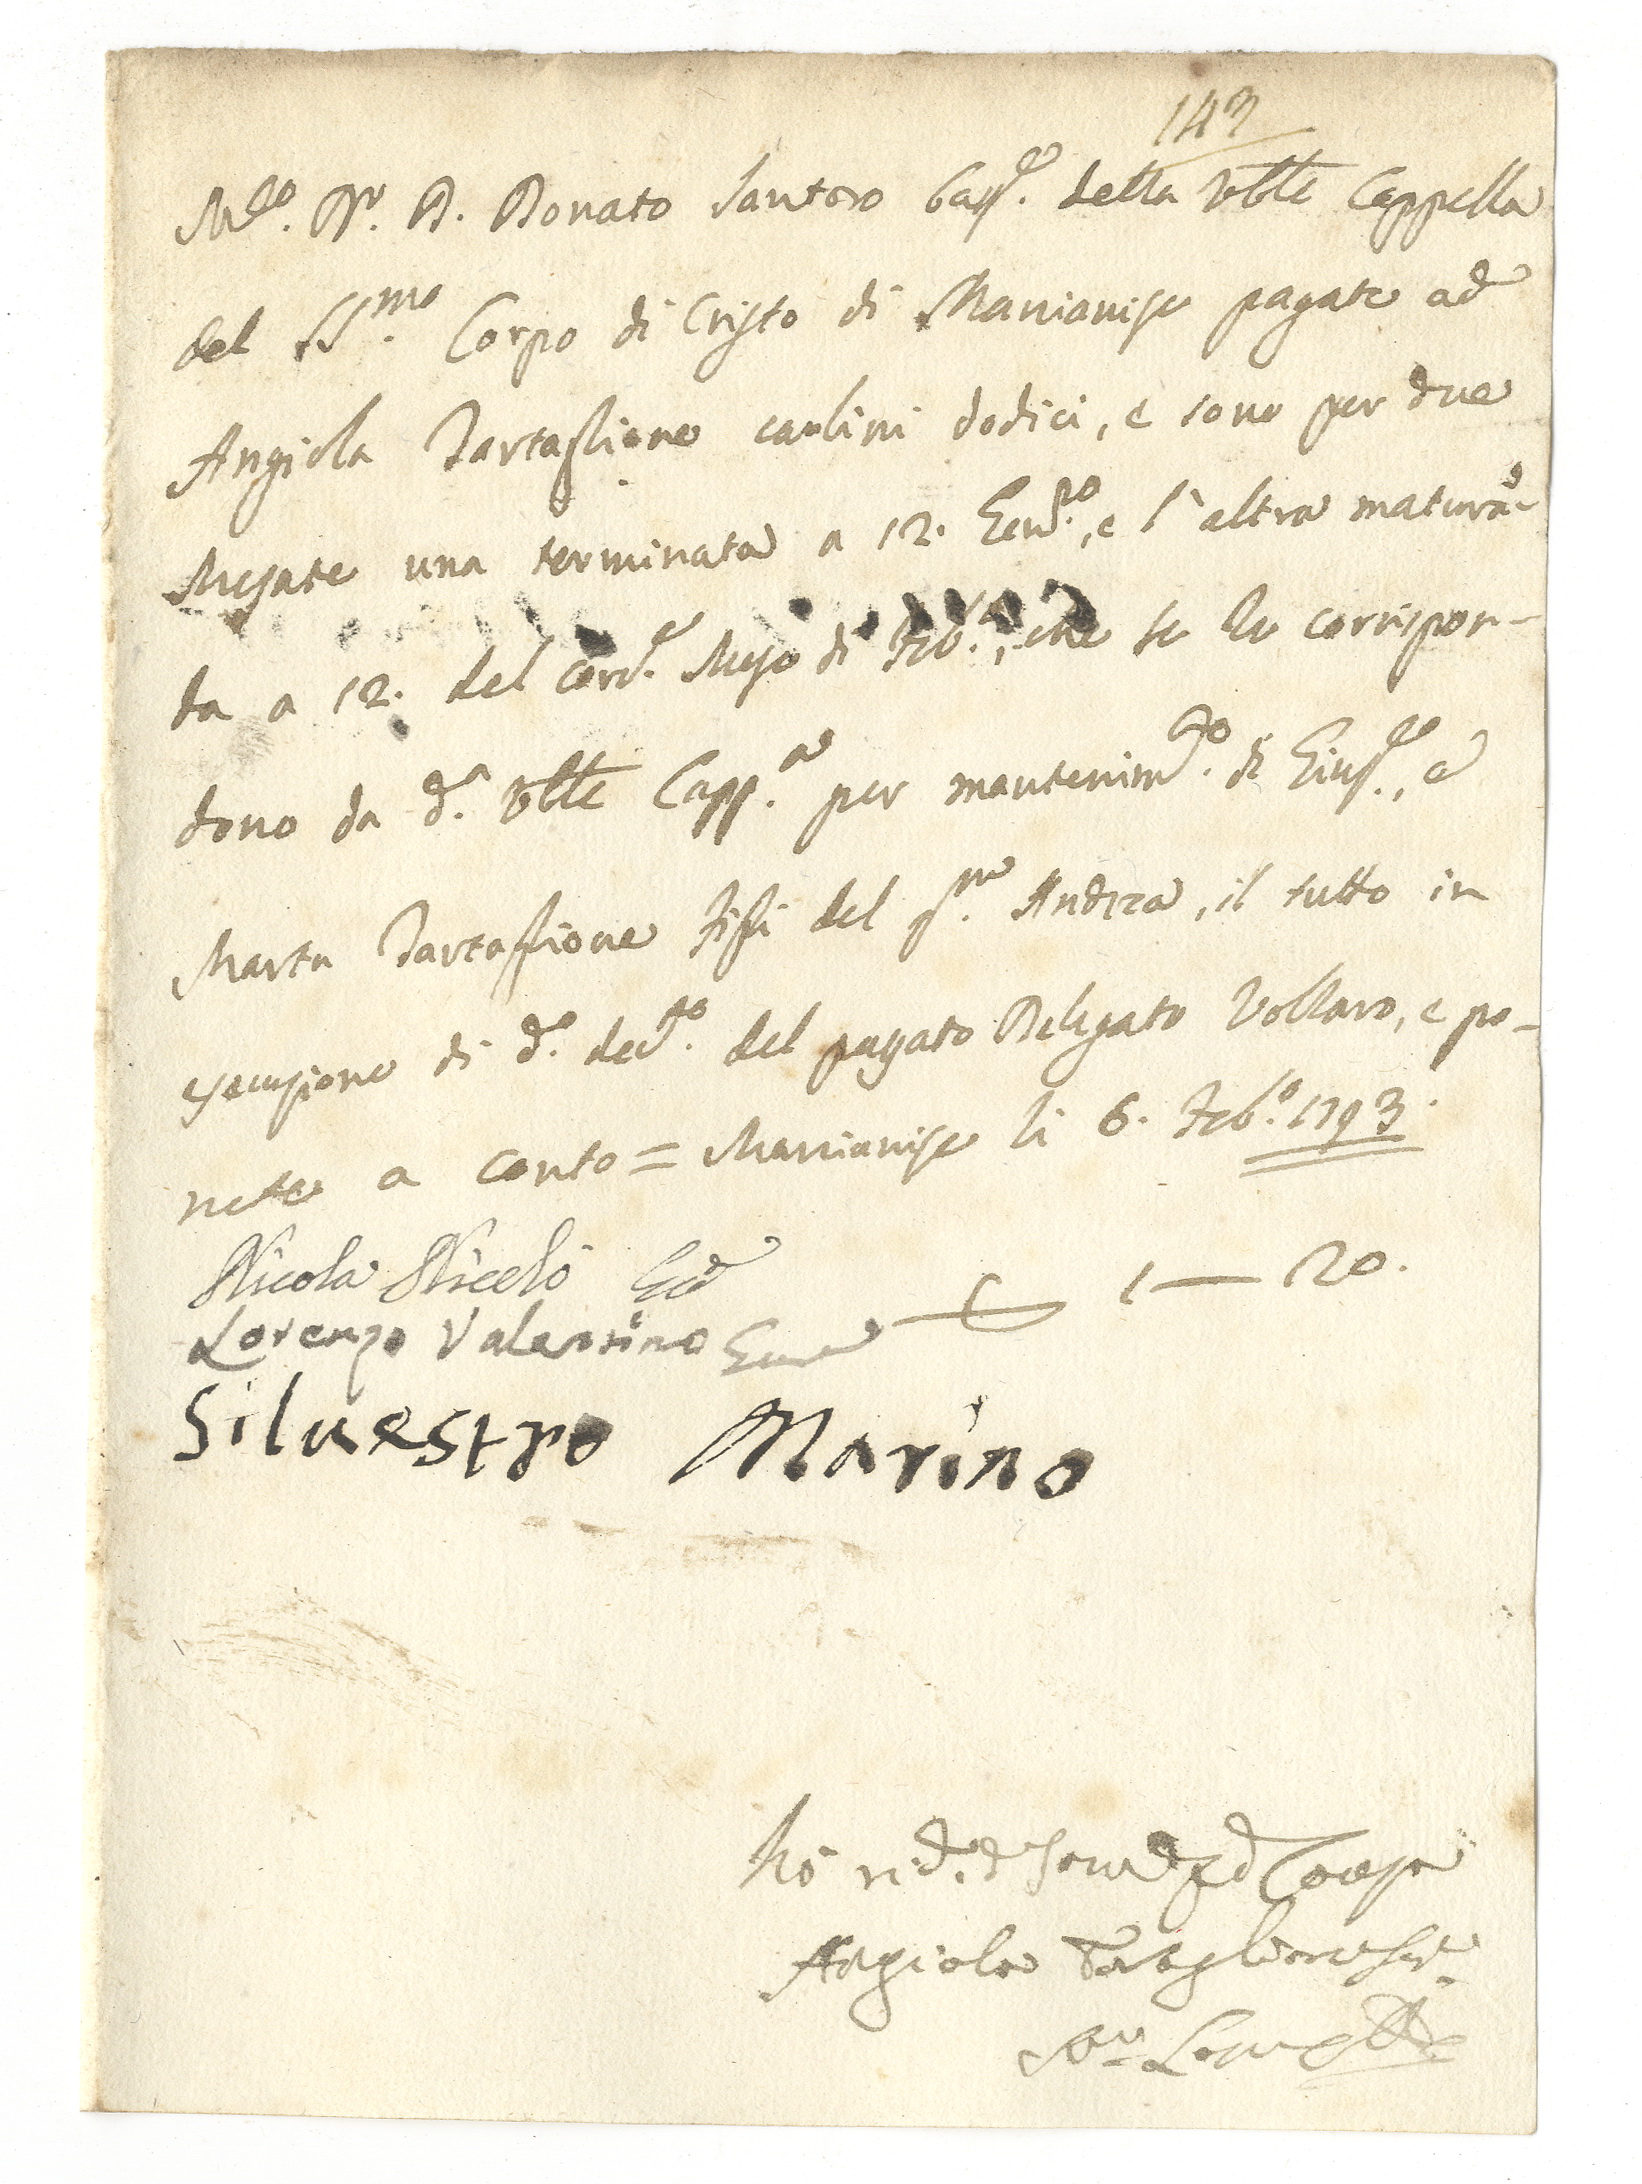 143
M.co D.r D. Donato Santoro Cass.e della Vble Cappella
del SS.mo Corpo di Cristo di Marcianise pagate ad
Angiola Tartaglione carlini dodici, e sono per due
Mesate una terminata a 12. Gen.ro, e l'altra matura-
da a 12. del cor.e Mese di Feb.o, che se le corrispon-
dono da d.a Vble Capp.a per mantenim.to di Gius.e, e
Marta Tartaglione figli del q.m Andrea, il tutto in
esecuzione di d.o dec.to del pagato Delegato Vollaro, e po-
nete a conto = Marcianise li 6. Feb.o 1793.
Nicola Nicolò
Lorenzo Valentino 1—20.
Silvestro Marino
hò
Angiola Tartaglione